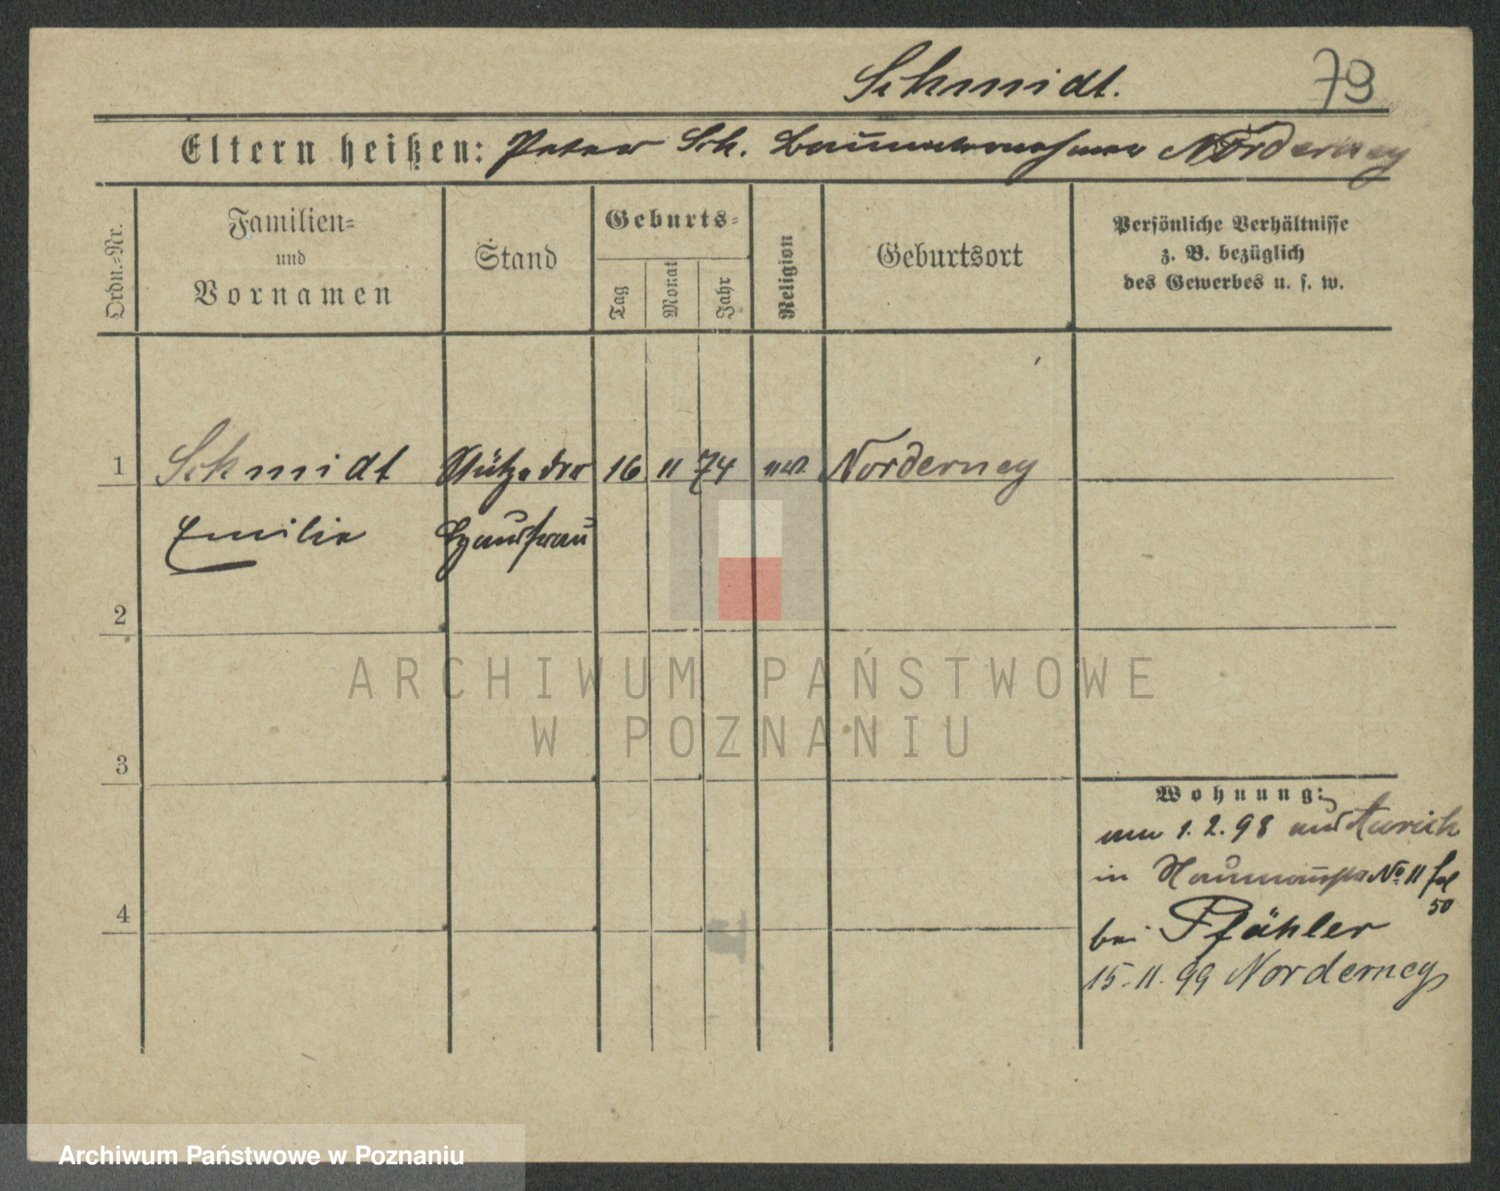 Schmidt.
79
Eltern heißen: Peter Sch. Bauunternehmer Norderney
Ordn.-Nr.
Familien-
und
Vornamen
Stand
Geburts-
Tag
Monat
Jahr
Religion
Geburtsort
Persönliche Verhältnisse
z. B. bezüglich
des Gewerbes u. s. w.
1 Schmidt Stütze der 16 11 74 ev. Norderney
Emilie Hausfrau
2
ARCHIWUM PAŃSTWOWE
W POZNANIU
3
Wohnung:
1. 2. 98 aus Aurich
in No 11 fol
50
bei Pfähler
15. 11. 99 Norderney
4
Archiwum Państwowe w Poznaniu